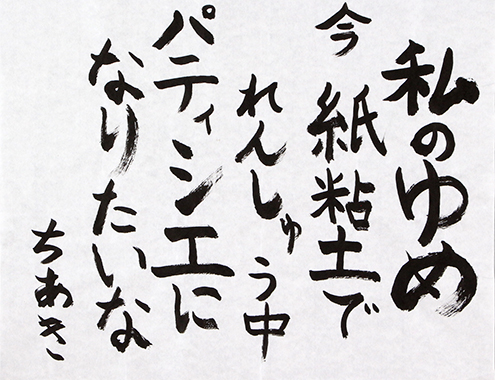 私のゆめ
今 紙粘土で
れんしゅう中
パティシエに
なりたいな
ちあき